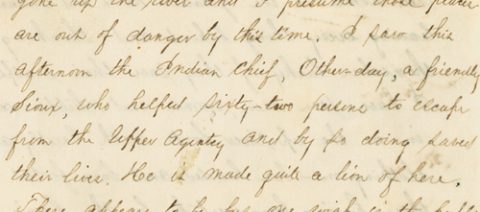 gone up the river and I presume those places
are out of danger by this time. I saw this
afternoon the Indian Chief, Other-day, a friendly
Sioux, who helped sixty-two persons to escape
from the Upper Agentcy and by so doing saved
their lives. He is made quite a lion of here.
There appears to be but one wish in the